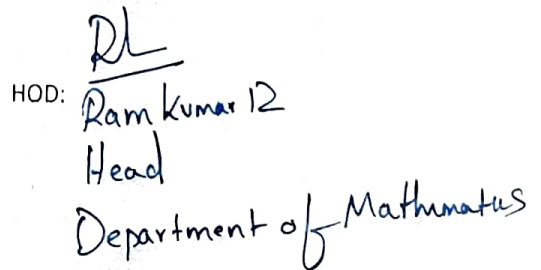 RL
HOD: Ram Kumar R
Head
Department of Mathematics